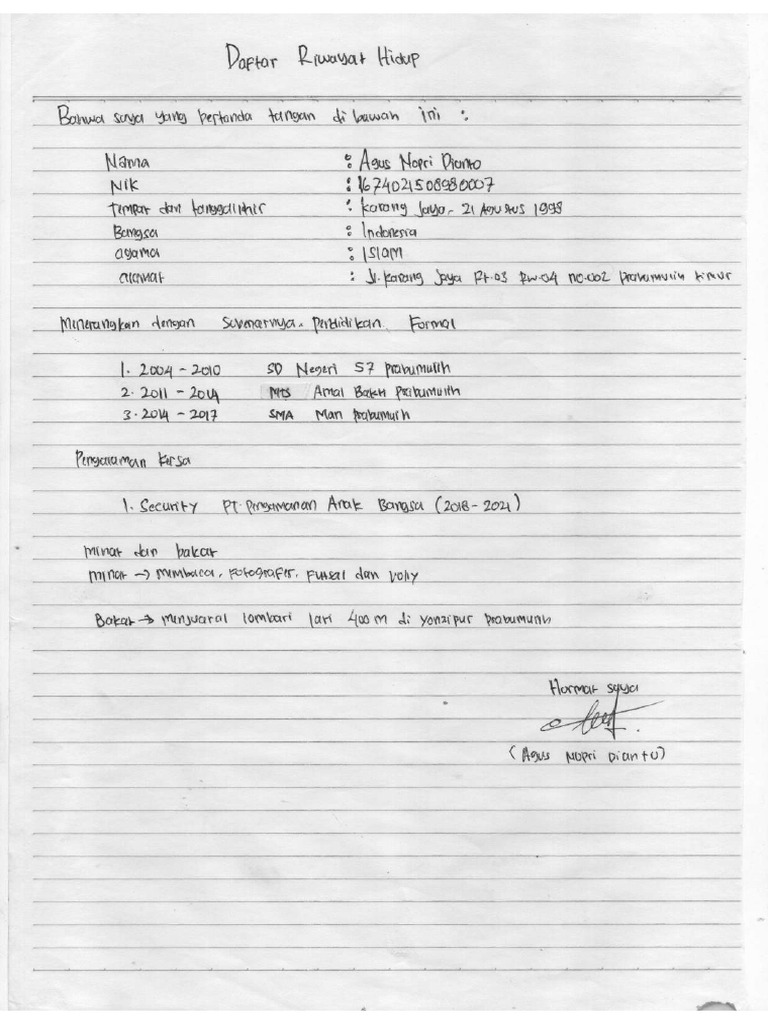 Daftar Riwayat Hidup
Bahwa saya yang bertanda tangan di bawah ini :
Nama : Agus Nopri Dianto
Nik : 1674021508980007
Tempat dan tanggal lahir : Karang Jaya, 21 Agustus 1998
Bangsa : Indonesia
agama : Islam
alamat : Jl. Karang Jaya Rt.03 Rw.04 no.002 prabumulih timur
Menerangkan dengan Sebenarnya. Pendidikan Formal
1. 2004 - 2010 SD Negeri 57 prabumulih
2. 2011 - 2014 MTS Amal Bakti Prabumulih
3. 2014 - 2017 SMA Man Prabumulih
Pengalaman Kerja
1. Security PT. Pengamanan Anak Bangsa (2018 - 2021)
minat dan bakat
minat → membaca, Fotografer, Futsal dan volly
Bakat → Menjuarai lomba lari 400 m di yonzipur prabumulih
Hormat saya
(Agus Nopri Dianto)